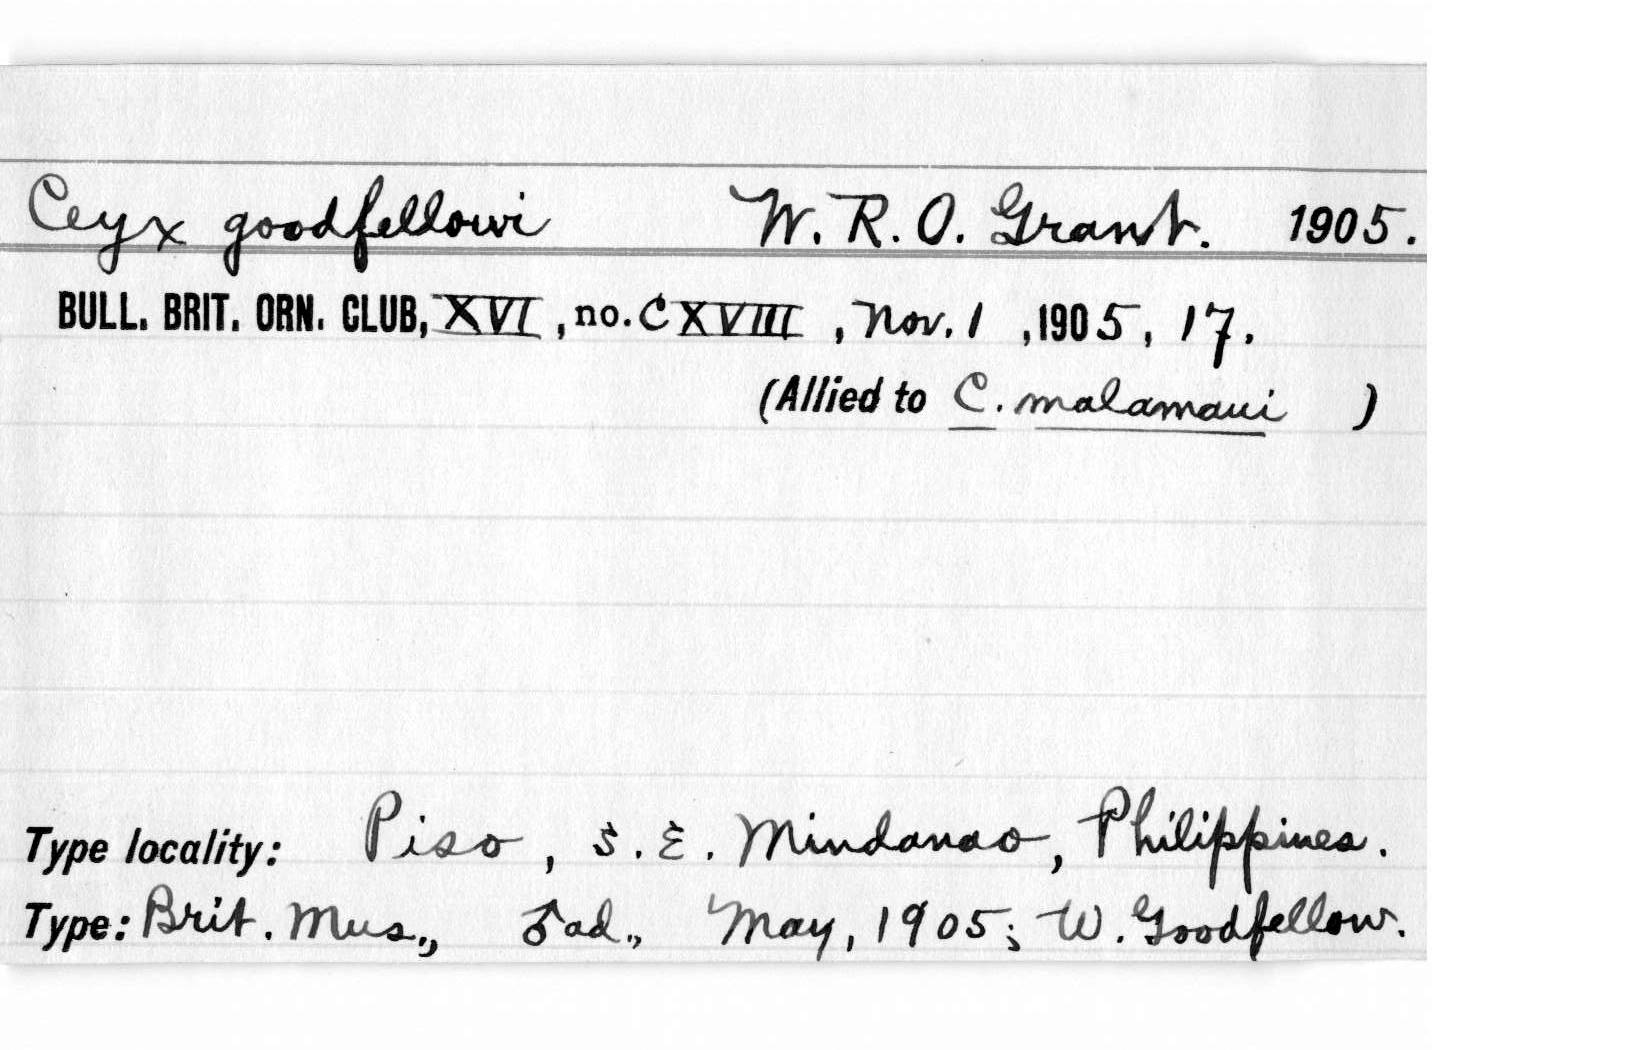 Ceyx goodfellowi W. R. O. Grant. 1905.
BULL. BRIT. ORN. CLUB, XVI, no. CXVIII, Nov. 1, 1905, 17.
(Allied to C. malamaui)
Type locality: Piso, S. E. Mindanao, Philippines.
Type: Brit. Mus., ♂ ad., May, 1905; W. Goodfellow.